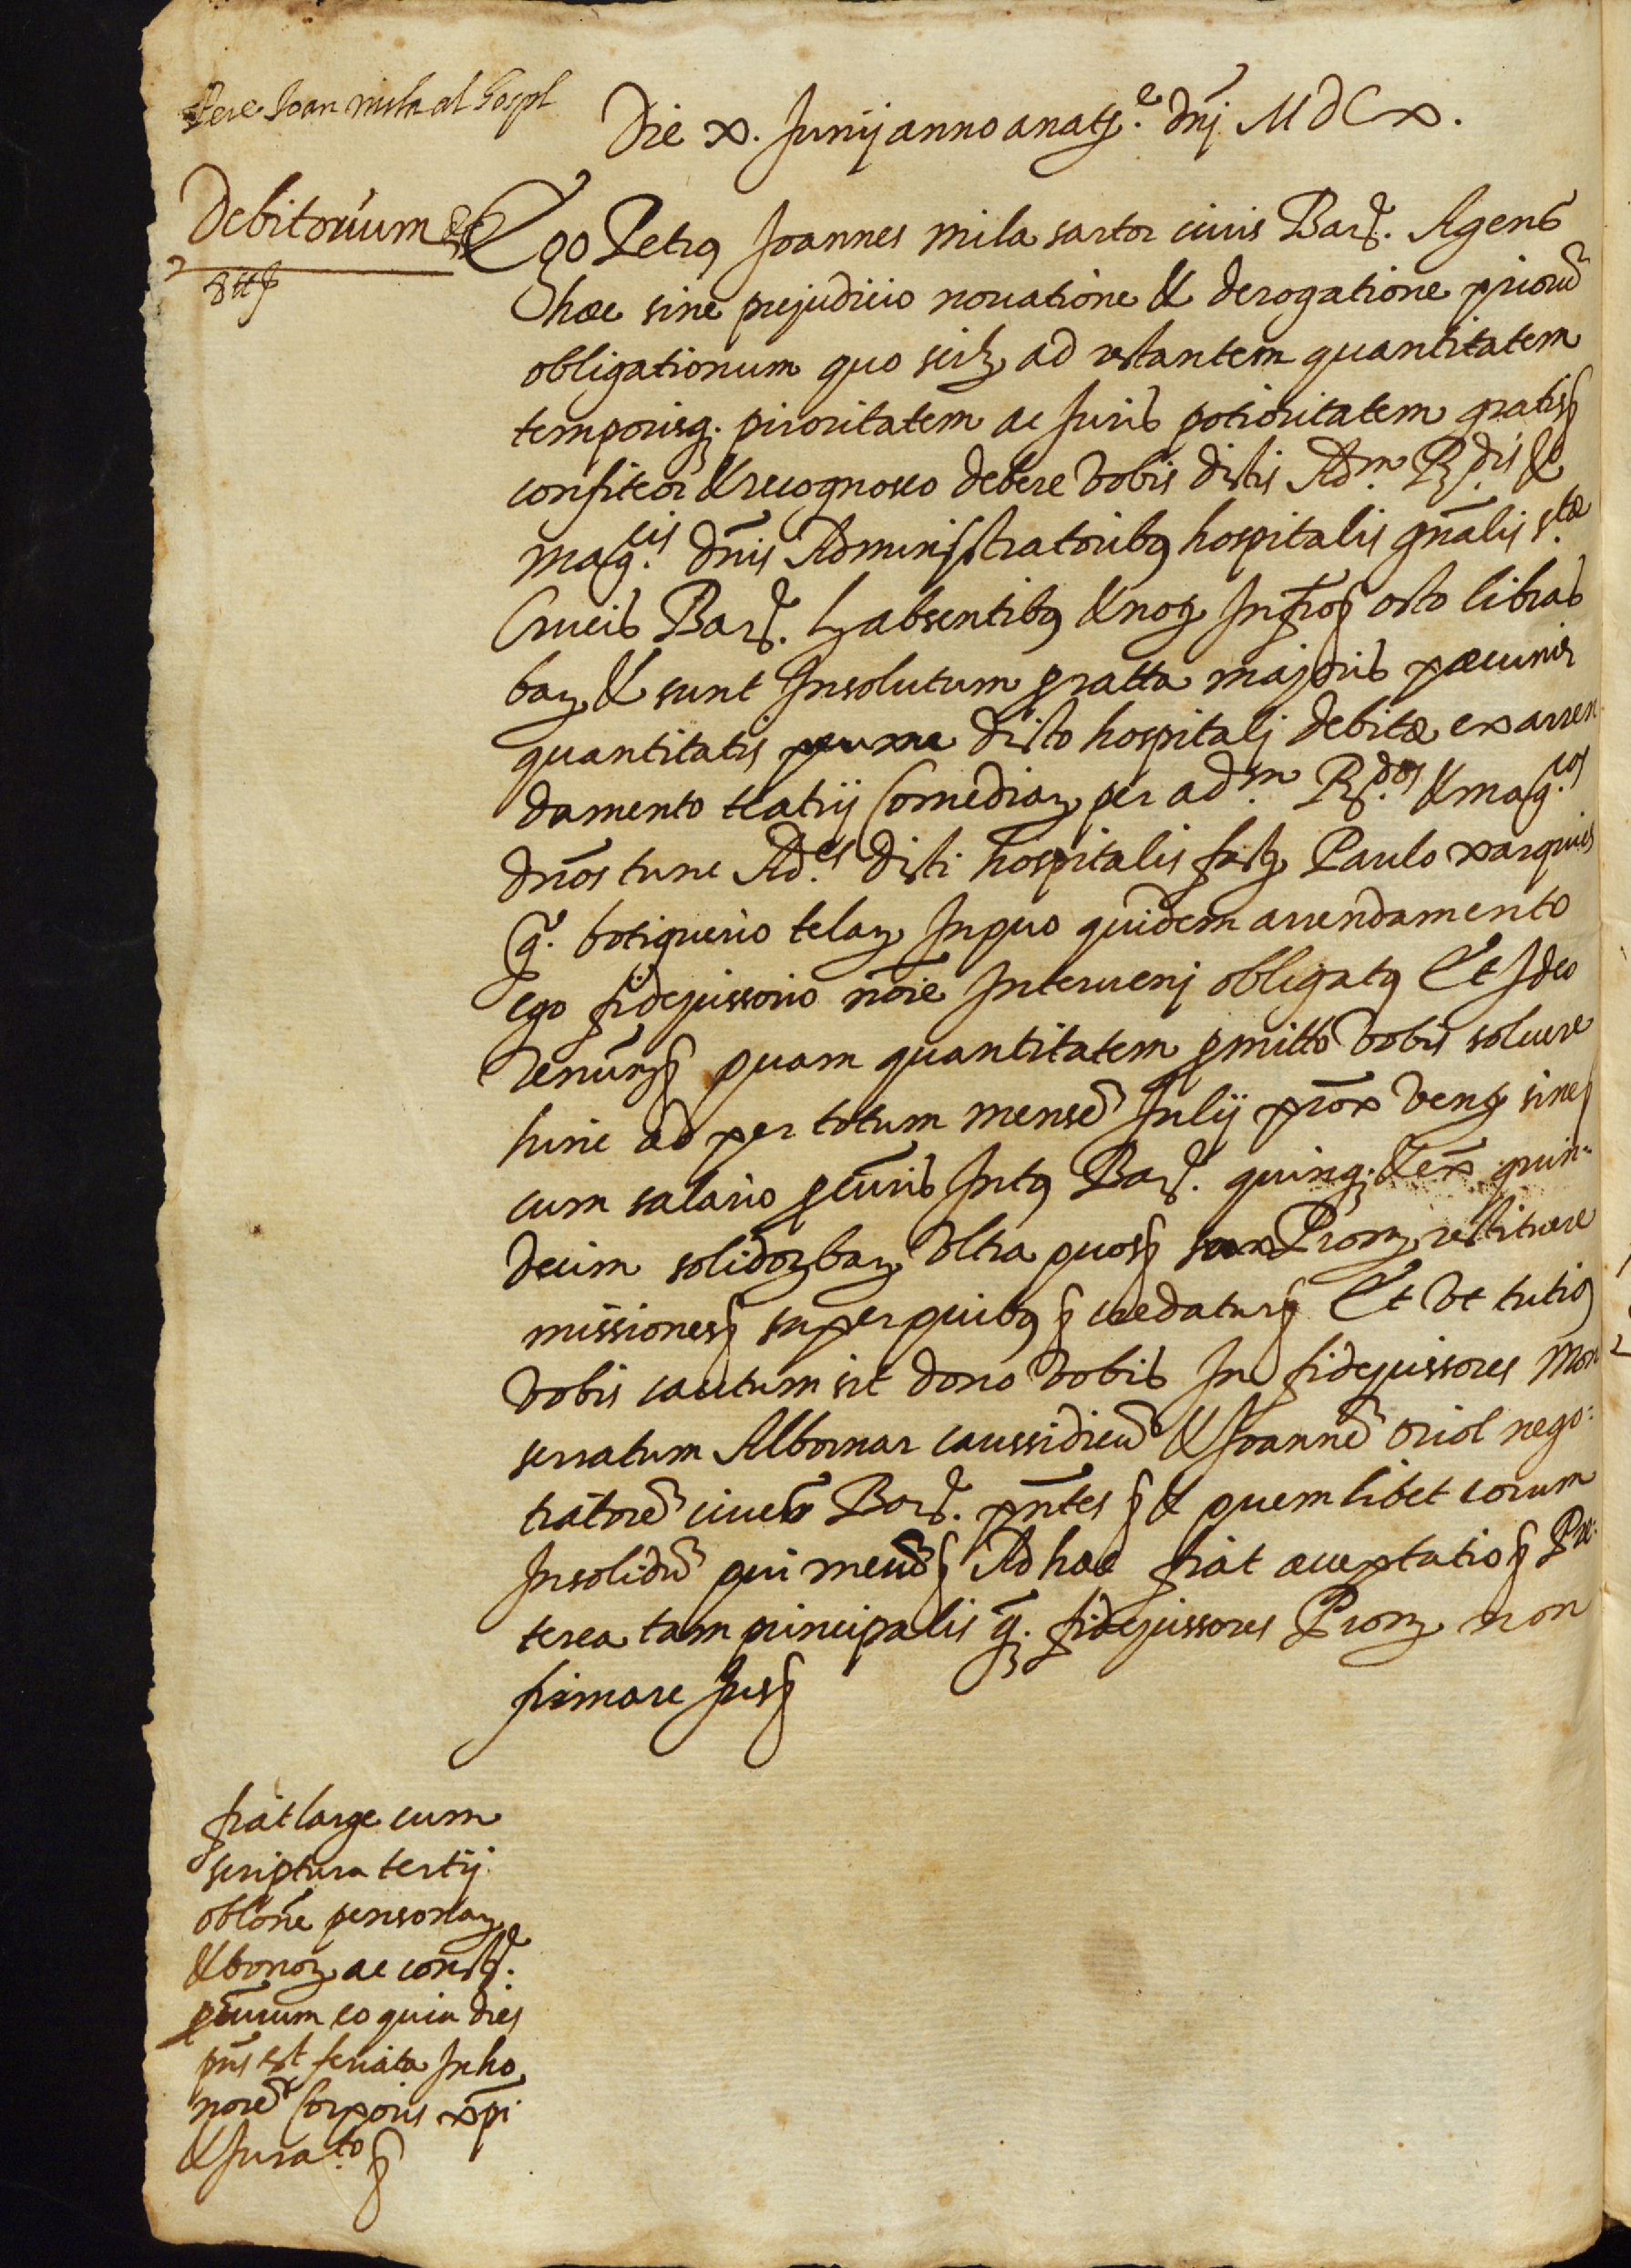 Pere Joan mila al hospl
Die x. Junij anno a natᵉ. dnj MDCx.
Debitorium
8 ℔
Ego Petrꝯ Joannes mila sartor civis Barᵉ. Agens
hæc sine prejudicio novatione & derogatione prioru
obligationum quo scilꝫ ad restantem quantitatem
temporisqꝫ. prioritatem ac Juris potioritatem gratis
confiteor & recognosco debere vobis dictis Adᵐ. Rᵈⁱˢ &
magᶜⁱˢ. dnis Administratoribꝯ hospitalis gnalis sᵗᵃᵉ.
Crucis Barᵉ. absentibꝯ & noᵒ Infro octo libras
barꝫ & sunt Insolutum proratta majoris pæcuniæ
quantitatis dicto hospitalj debitæ ex arren
damento teatrij Comediarꝫ per adᵐ. Rᵈᵒˢ. & magᶜᵒˢ.
dnos tunc Adᵉˢ. dicti hospitalis factꝫ Paulo xarquies
q̃. botiguerio telarꝫ In quo quidem arrendamento
ego fidejussorio noie Intervenj obligatꝯ Et Ideo
renun quam quantitatem pmitto vobis solvere
hinc ad per totum mense Julij prox ven sine
cum salario pcuris Intꝯ Barᵉ. quinqꝫ. & ex quin-
decim solidorꝫ barꝫ Vltra quos Promꝫ restituere
missiones super quibꝯ credatur Et Vt tutiꝯ
vobis cautum sit dono vobis In fidejussores Mon
serratum Albornar caussidicu & Joanne oriol nego:
tiatore cives Barᵉ. pntes & quemlibet eorum
Insolidu qui mecu Ad hæc fiat acceptatio Præ:
terea tam principalis q̃. fidejussores Promꝫ non
firmare Jus
fiat large cum
scriptura tertij
oblone personarꝫ
& bonorꝫ ac constᵉ.
pcurum eo quia dies
pns est feriata In ho
nore Corporis xpi
& Juraᵗᵒ.